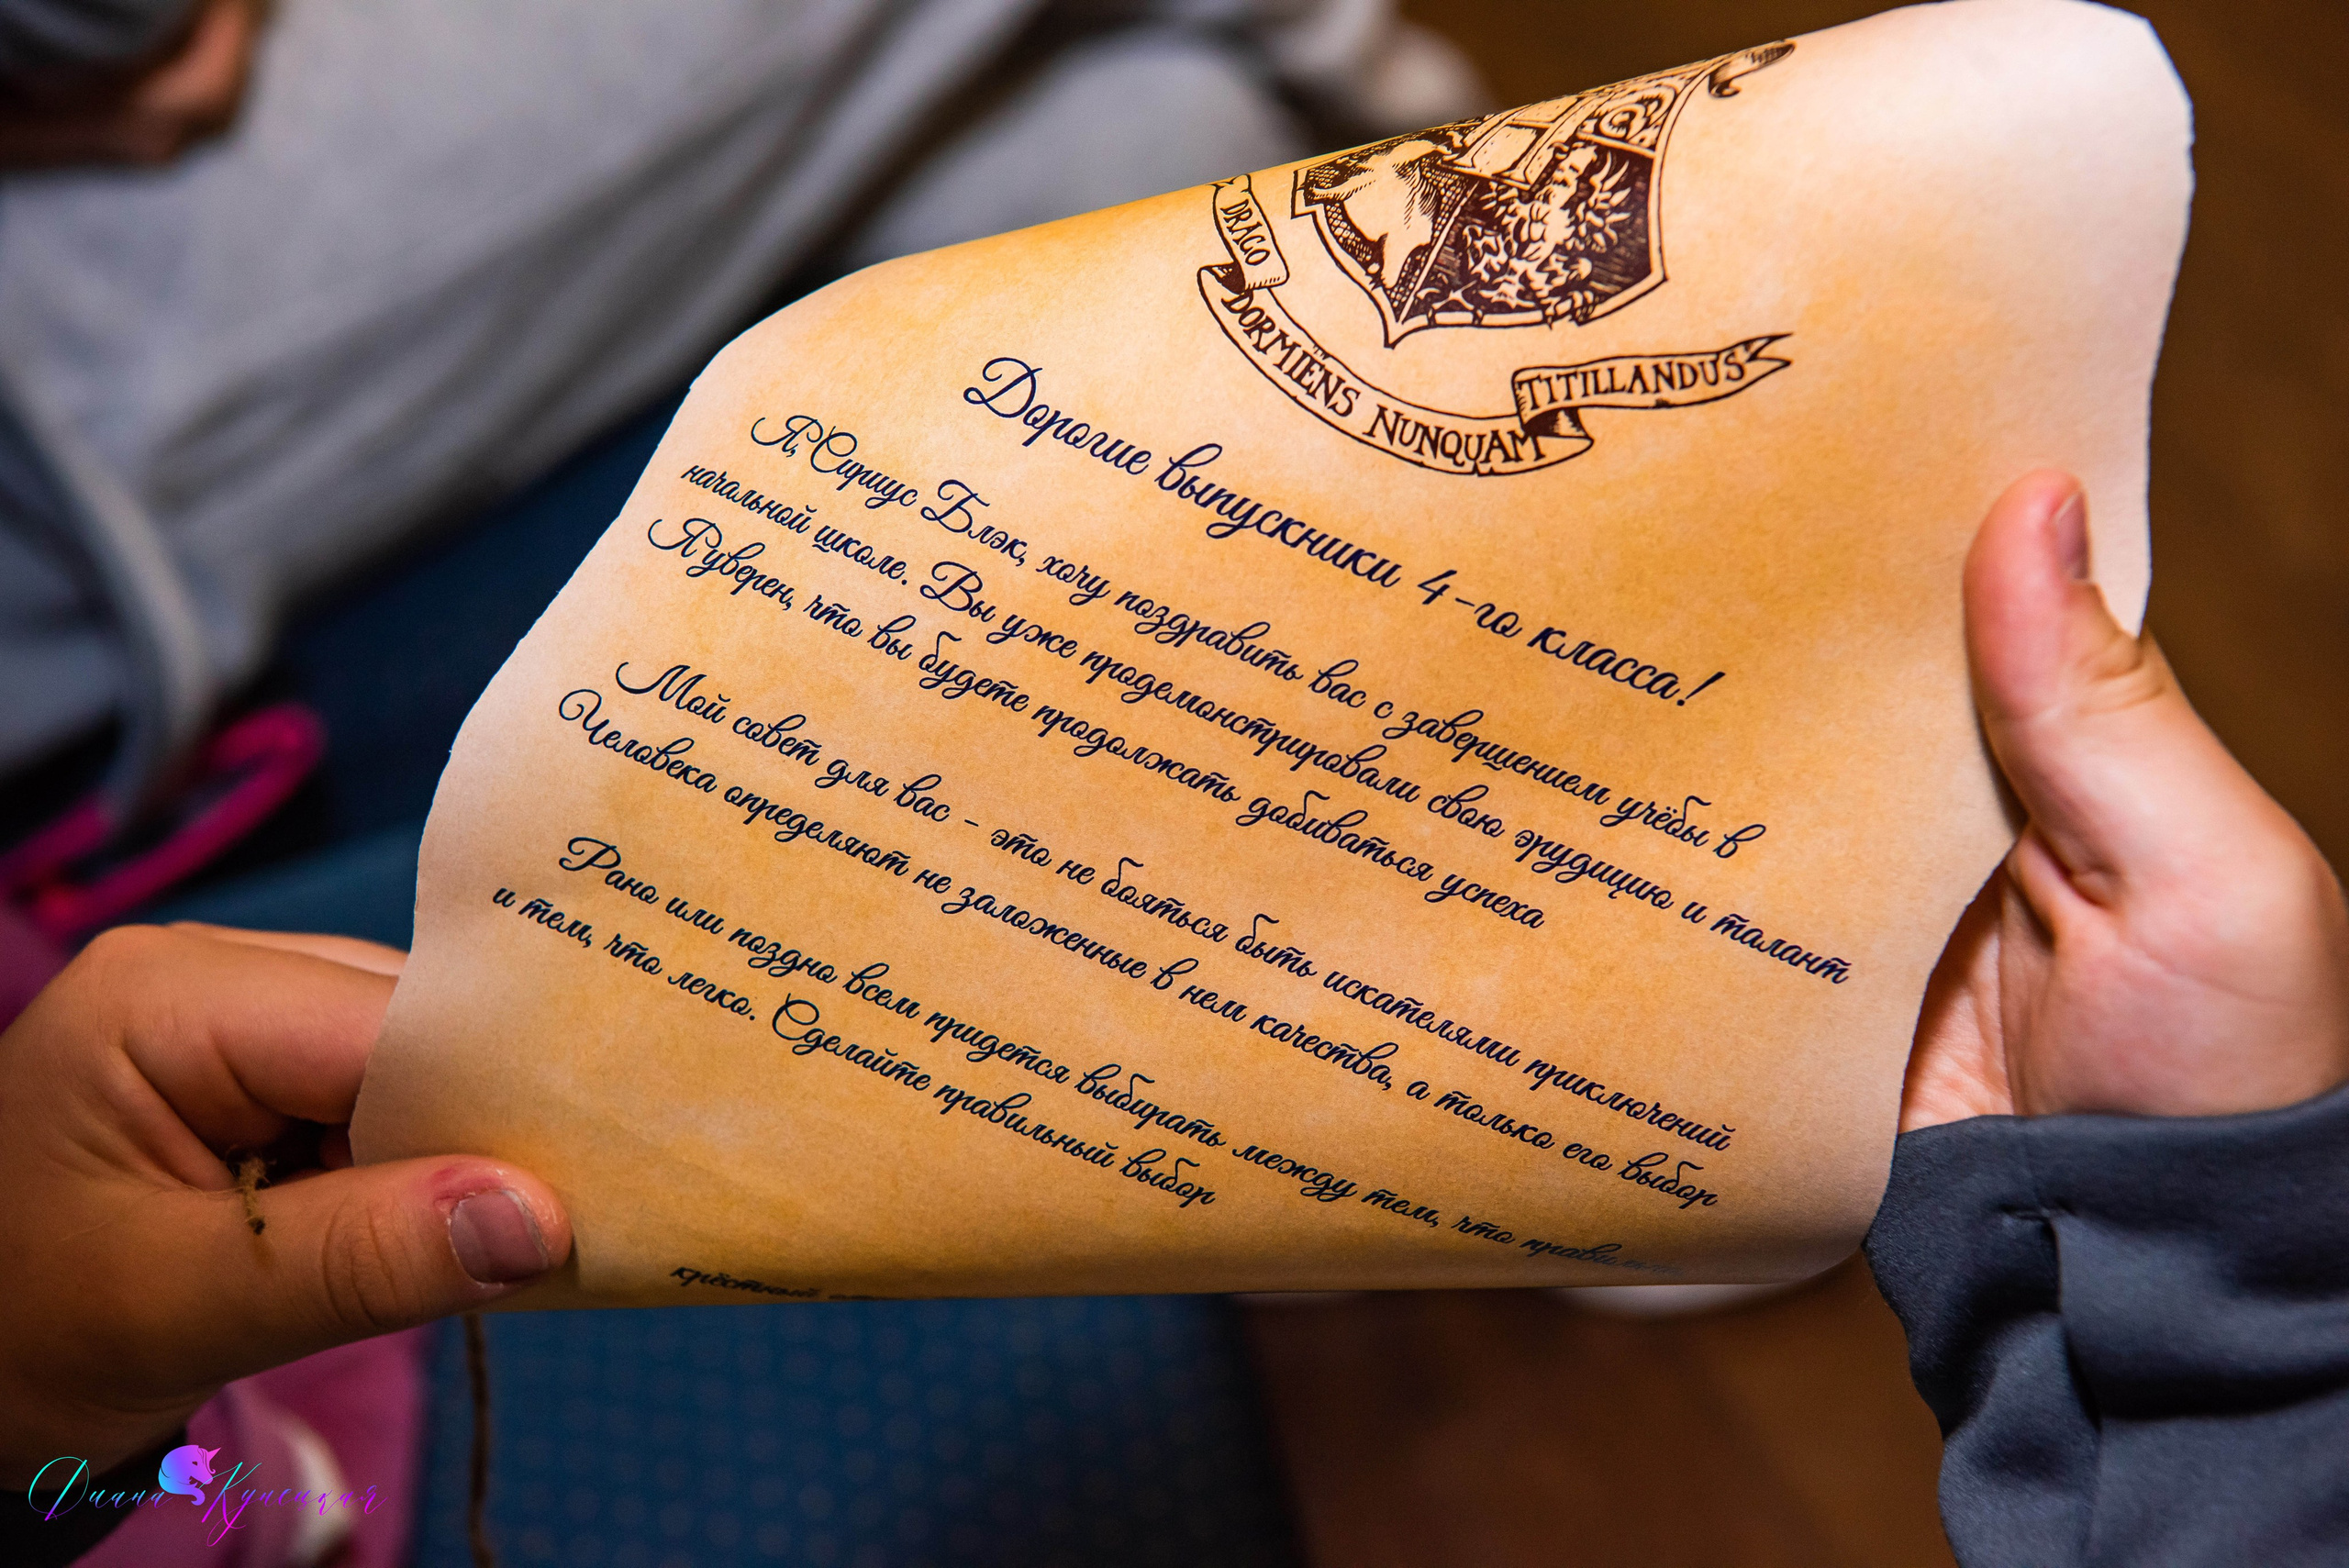 DRACO
DORMIENS NUNQUAM
TITILLANDUS
Дорогие выпускники 4-го класса!
Я, Сириус Блэк, хочу поздравить вас с завершением учёбы в
начальной школе. Вы уже продемонстрировали свою эрудицию и талант
Я уверен, что вы будете продолжать добиваться успеха
Мой совет для вас - это не бояться быть искателями приключений
Человека определяют не заложенные в нем качества, а только его выбор
Рано или поздно всем придется выбирать между тем, что
и тем, что легко. Сделайте правильный выбор
крёстный
Диана Купецкая